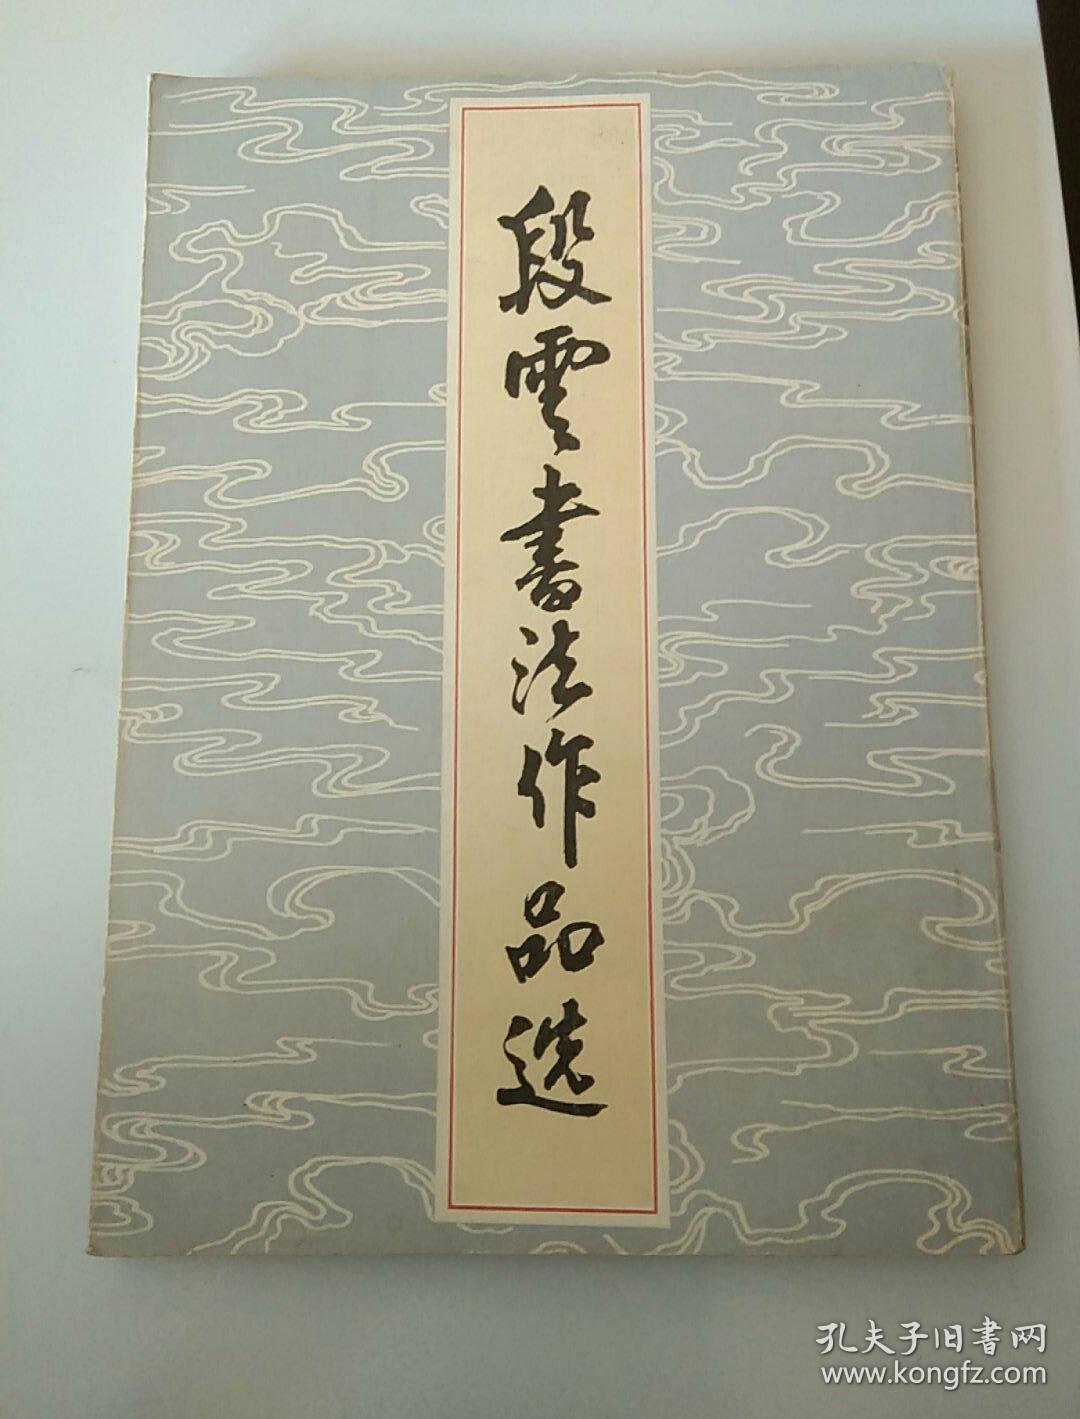 段雲書法作品选
孔夫子旧書网
www.kongfz.com